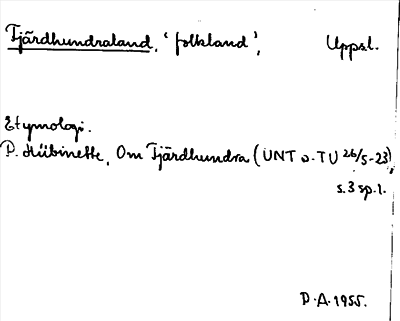 Fjärdhundraland, 'folkland', Uppsl.
Etymologi.
P. Hübinette, Om Fjärdhundra (UNT o. TU 26/5-23),
s. 3 sp. 1.
D.A. 1955.